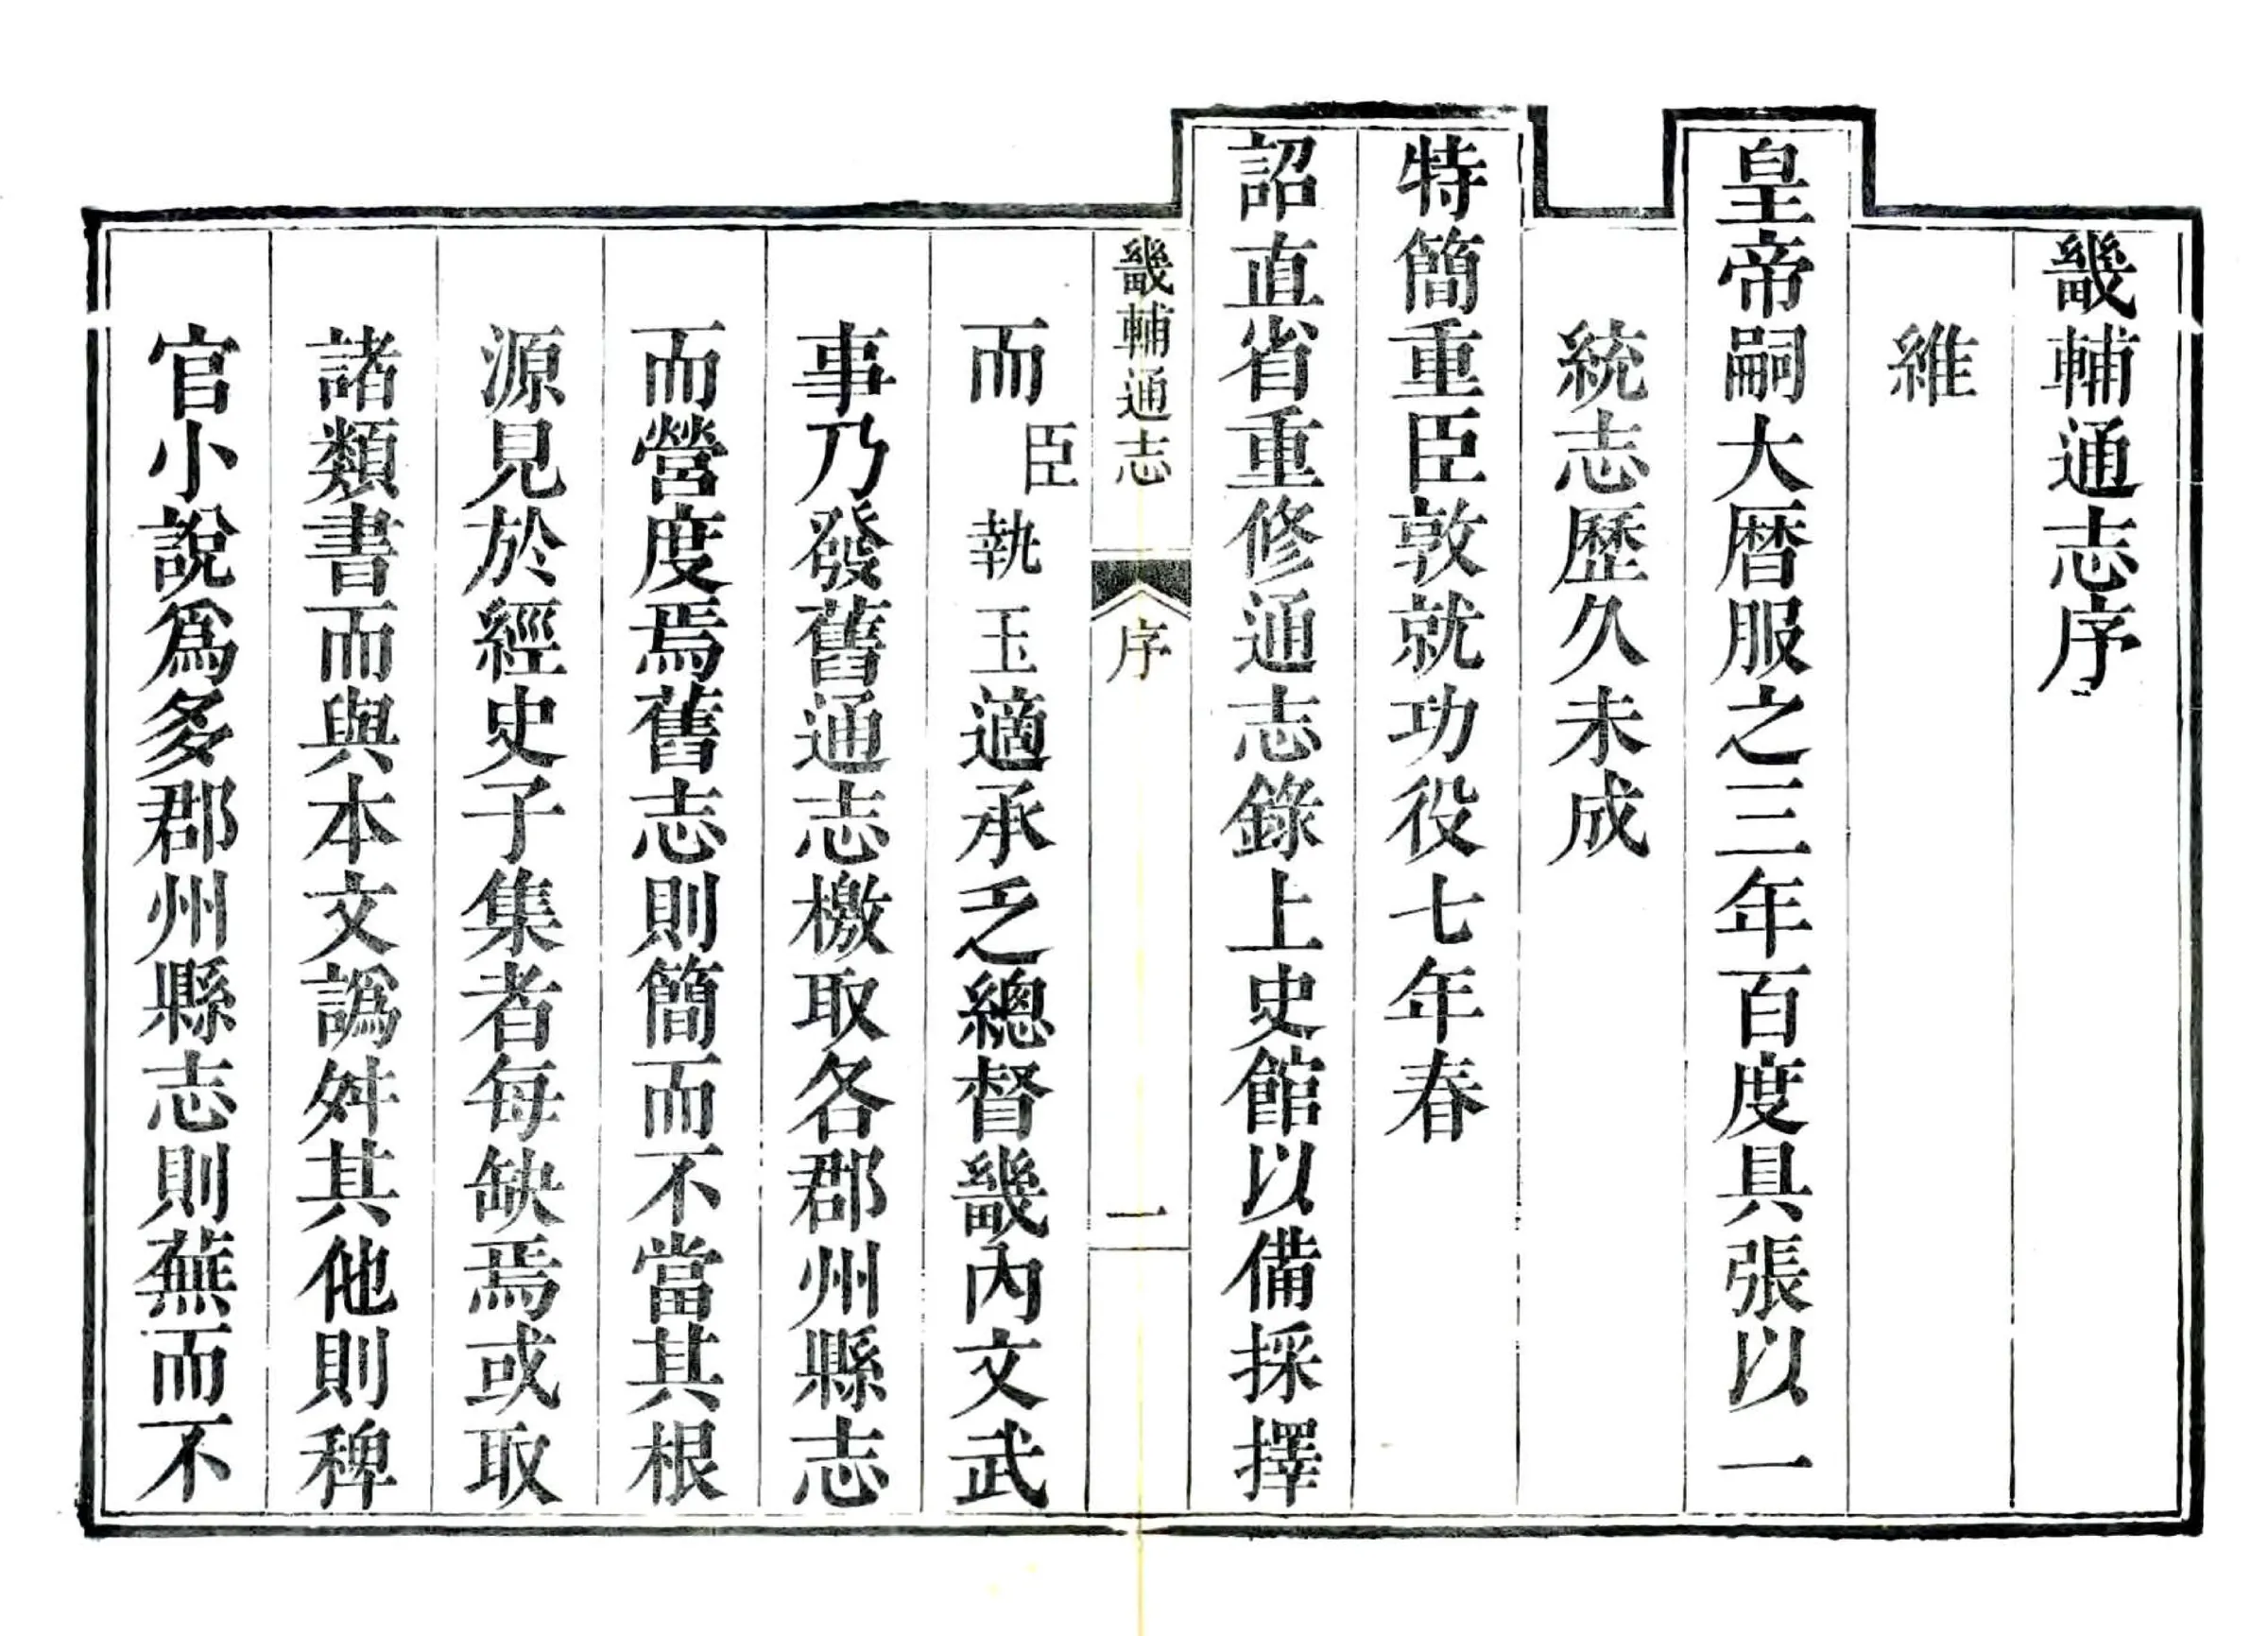 畿輔通志序
維
皇帝嗣大曆服之三年百度具張以一
統志歷久未成
特簡重臣敦就功役七年春
詔直省重修通志錄上史館以備採擇
畿輔通志 序 一
而臣執玉適承乏總督畿內文武
事乃發舊通志檄取各郡州縣志
而營度焉舊志則簡而不當其根
源見於經史子集者每缺焉或取
諸類書而與本文譌舛其他則稗
官小說爲多郡州縣志則蕪而不